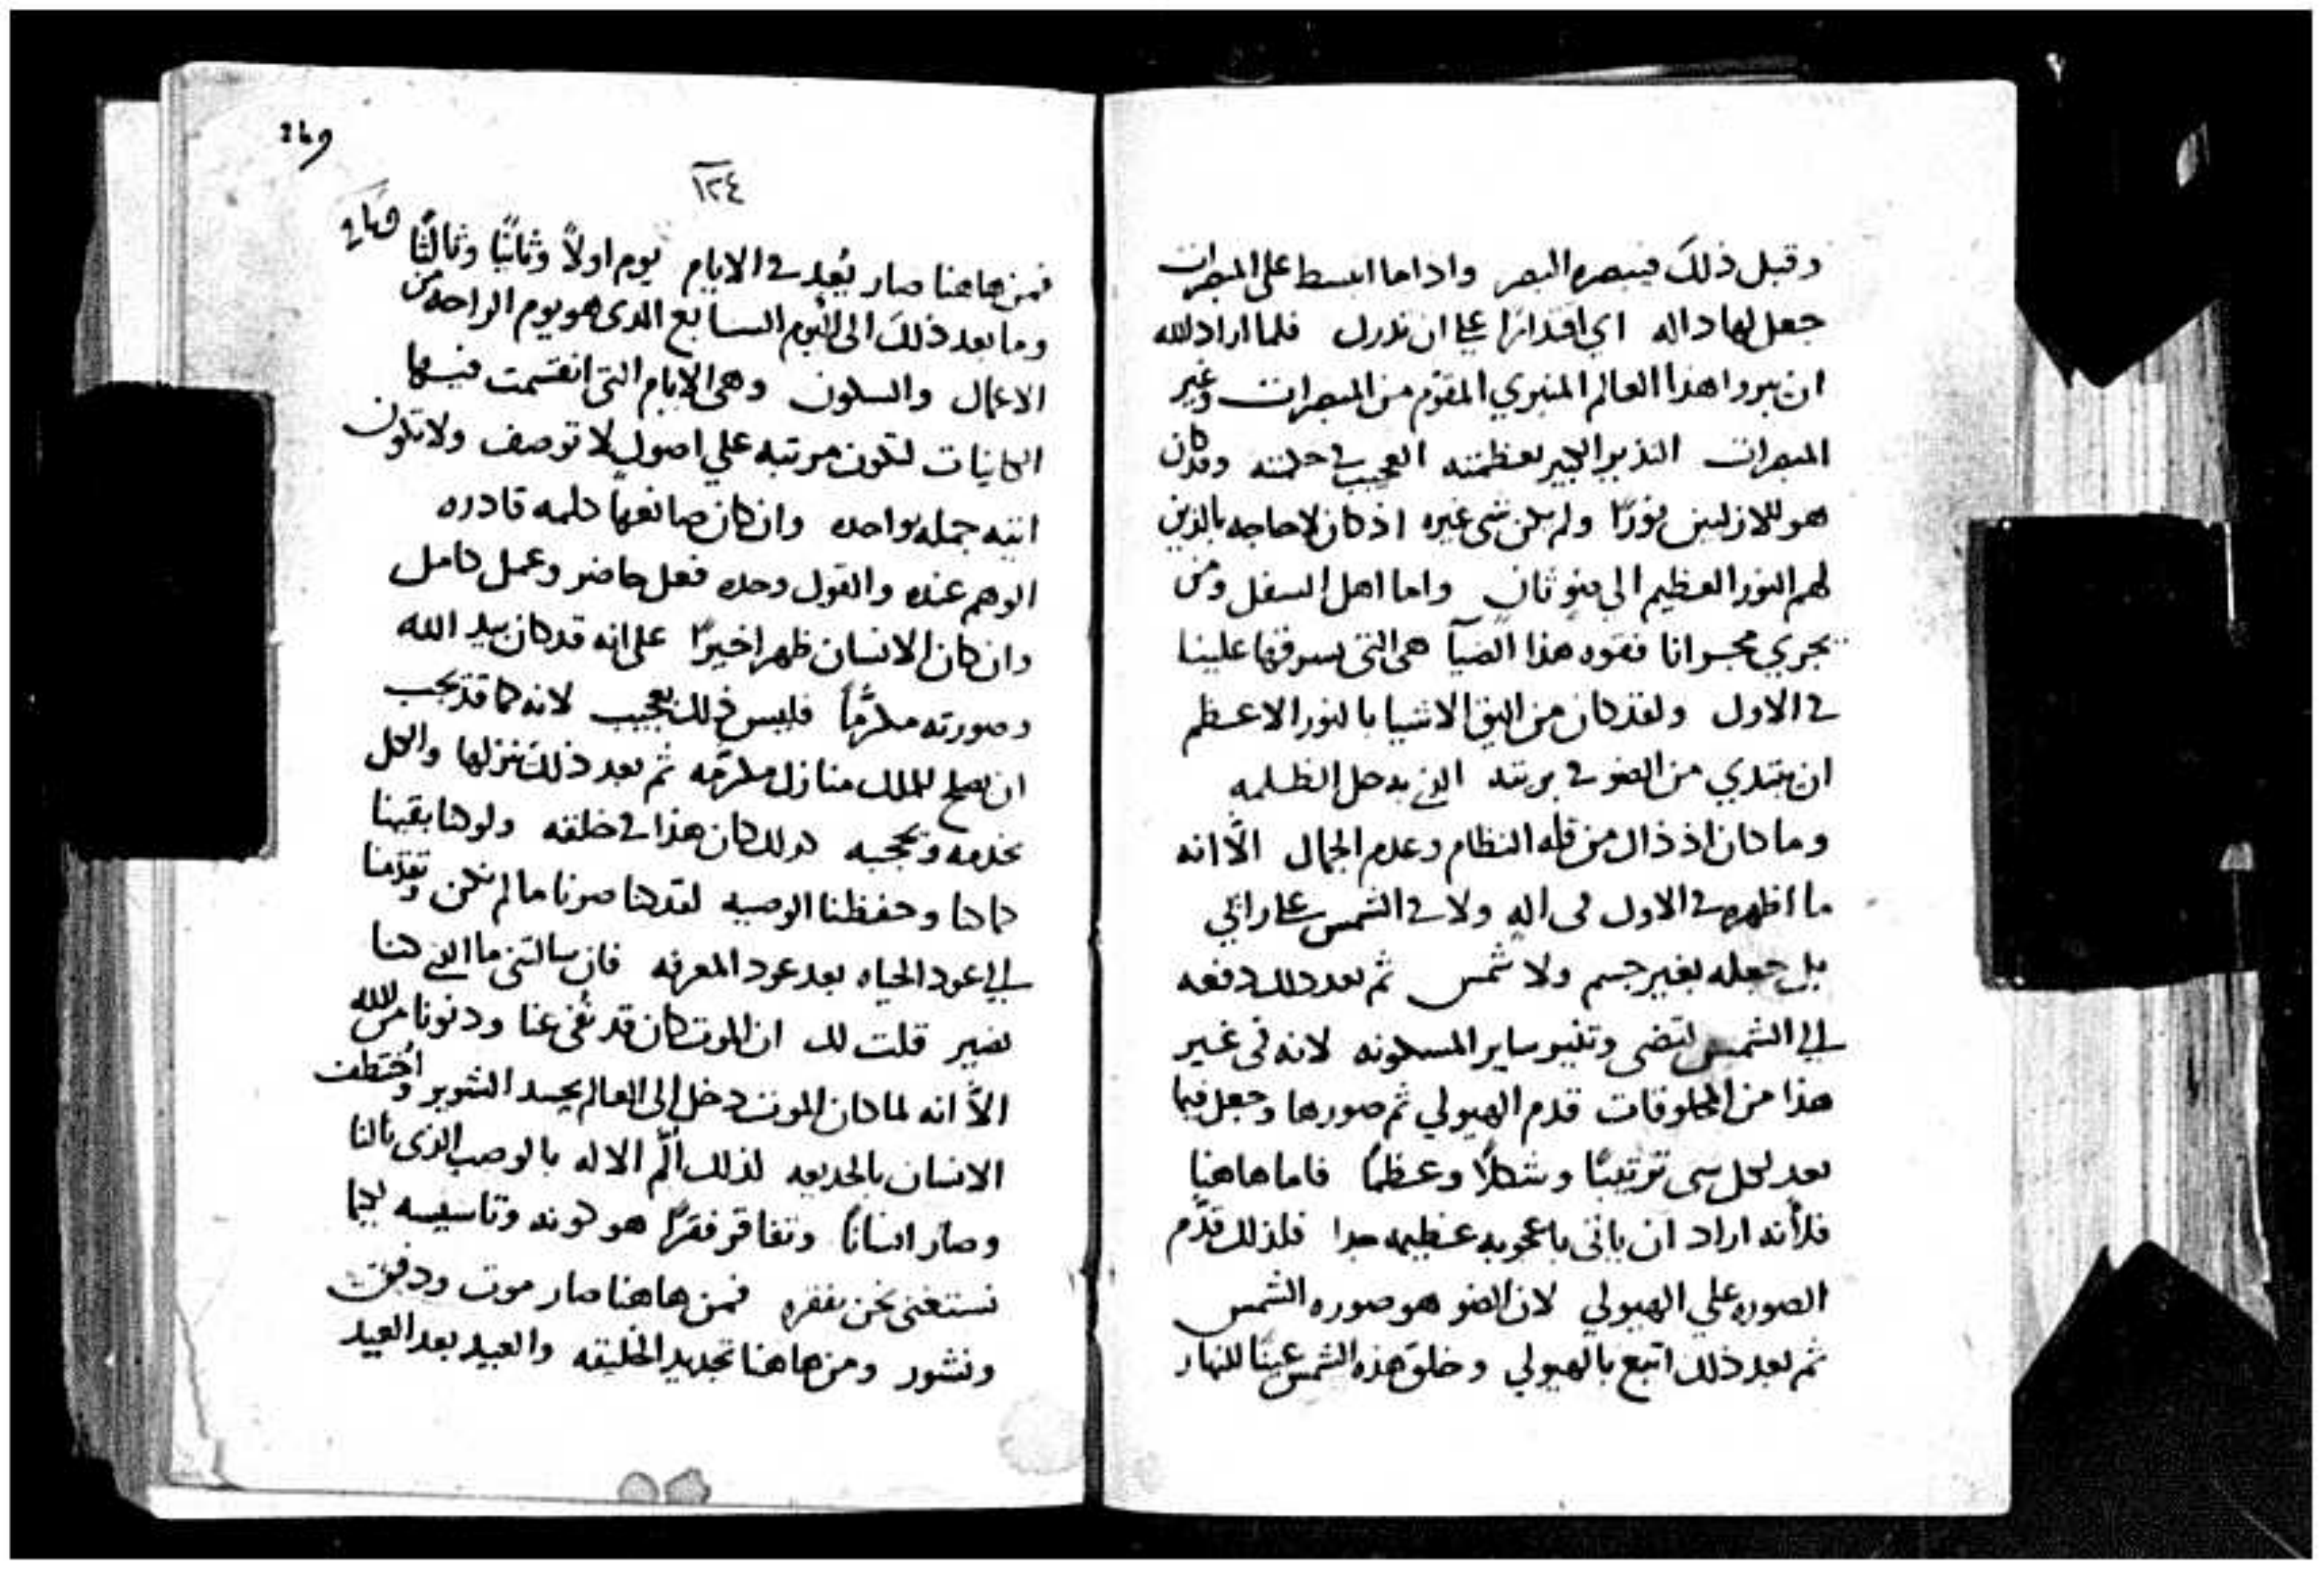 وقبل ذلك فيبصره البصر واداما انبسط على المبصرات
جعل لها داله اي اقدارًا على ان تدرك فلما اراد الله
ان يبروا هذا العالم المنيري المقوّم من المبصرات وغير
المبصرات النذير الكبير بعظمته العجيب في حكمته وقد كان
هو للازليين نورًا ولم يكن شي غيره اذ كان لا حاجه بالذين
لهم النور العظيم الى ضوٍ ثانٍ واما اهل السفل ومن
يجري مجرانا فقوه هذا الضيآ هي التي يسوقها علينا
في الاول ولقد كان من اليق الاشيا بالنور الاعظم
ان يبتدي من الضو في بريته الذي به حل الظلمه
وما كان اذ ذاك من قله النظام وعدم الجمال الّا انه
ما اظهره في الاول في اله ولا في الشمس على رايي
بل جعله بغير جسم ولا شمس ثم بعد ذلك دفعه
الى الشمس لتضي وتنير ساير المسكونه لانه في غير
هذا من المخلوقات قدم الهيولي ثم صورها وجعل فيما
بعد لكل شي ترتيبًا وشكلًا وعظمًا فاما هاهنا
فلأنه اراد ان ياتي باعجوبه عظيمه جدا فلذلك قدّم
الصوره على الهيولي لان الضو هو صوره الشمس
ثم بعد ذلك اتبع بالهيولي وخلق هذه الشمس عينًا للنهار
١٢٤
فمن هاهنا صار يُعد في الايام يوم اولًا وثانيًا وثالثًا
وما بعد ذلك الى اليوم السابع الذي هو يوم الراحه من
الاعمال والسكون وهي الايام التي انقسمت فيها
الكاينات لتكون مرتبه على اصول لا توصف ولا تكون
اتيه جمله واحده وان كان صانعها كلمه قادره
الوهم عنده والقول وحده فعل حاضر وعمل كامل
وان كان الانسان ظهر اخيرًا على انه قد كان بيد الله
وصورته مكرّمًا فليس ذلك بعجيب لانه كما قد يجب
ان يصلح للملك منازل مكرّمه ثم بعد ذلك ينزلها والكل
يخدمه ويحجبه كذلك كان هذا في خلقه ولو كنا بقينا
كما كنا وحفظنا الوصيه لقد كنا صرنا ما لم نكن وتقدّمنا
الى عود الحياه بعد عود المعرفه فان سالتني ما الذي كنا
نصير قلت لك ان الموت كان قد نُفي عنا ودنونا من الله
الّا انه لما كان الموت دخل الى العالم بحسد الشرير واختطف
الانسان بالخديعه لذلك ألّم الاله بالوصب الذي نالنا
وصار انسانًا وتفاقر فقرًا هو كونه وتاسيسه لكيما
نستغني نحن بفقره فمن هاهنا صار موت ودفن
ونشور ومن هاهنا تجديد الخليقه والعيد بعد العيد